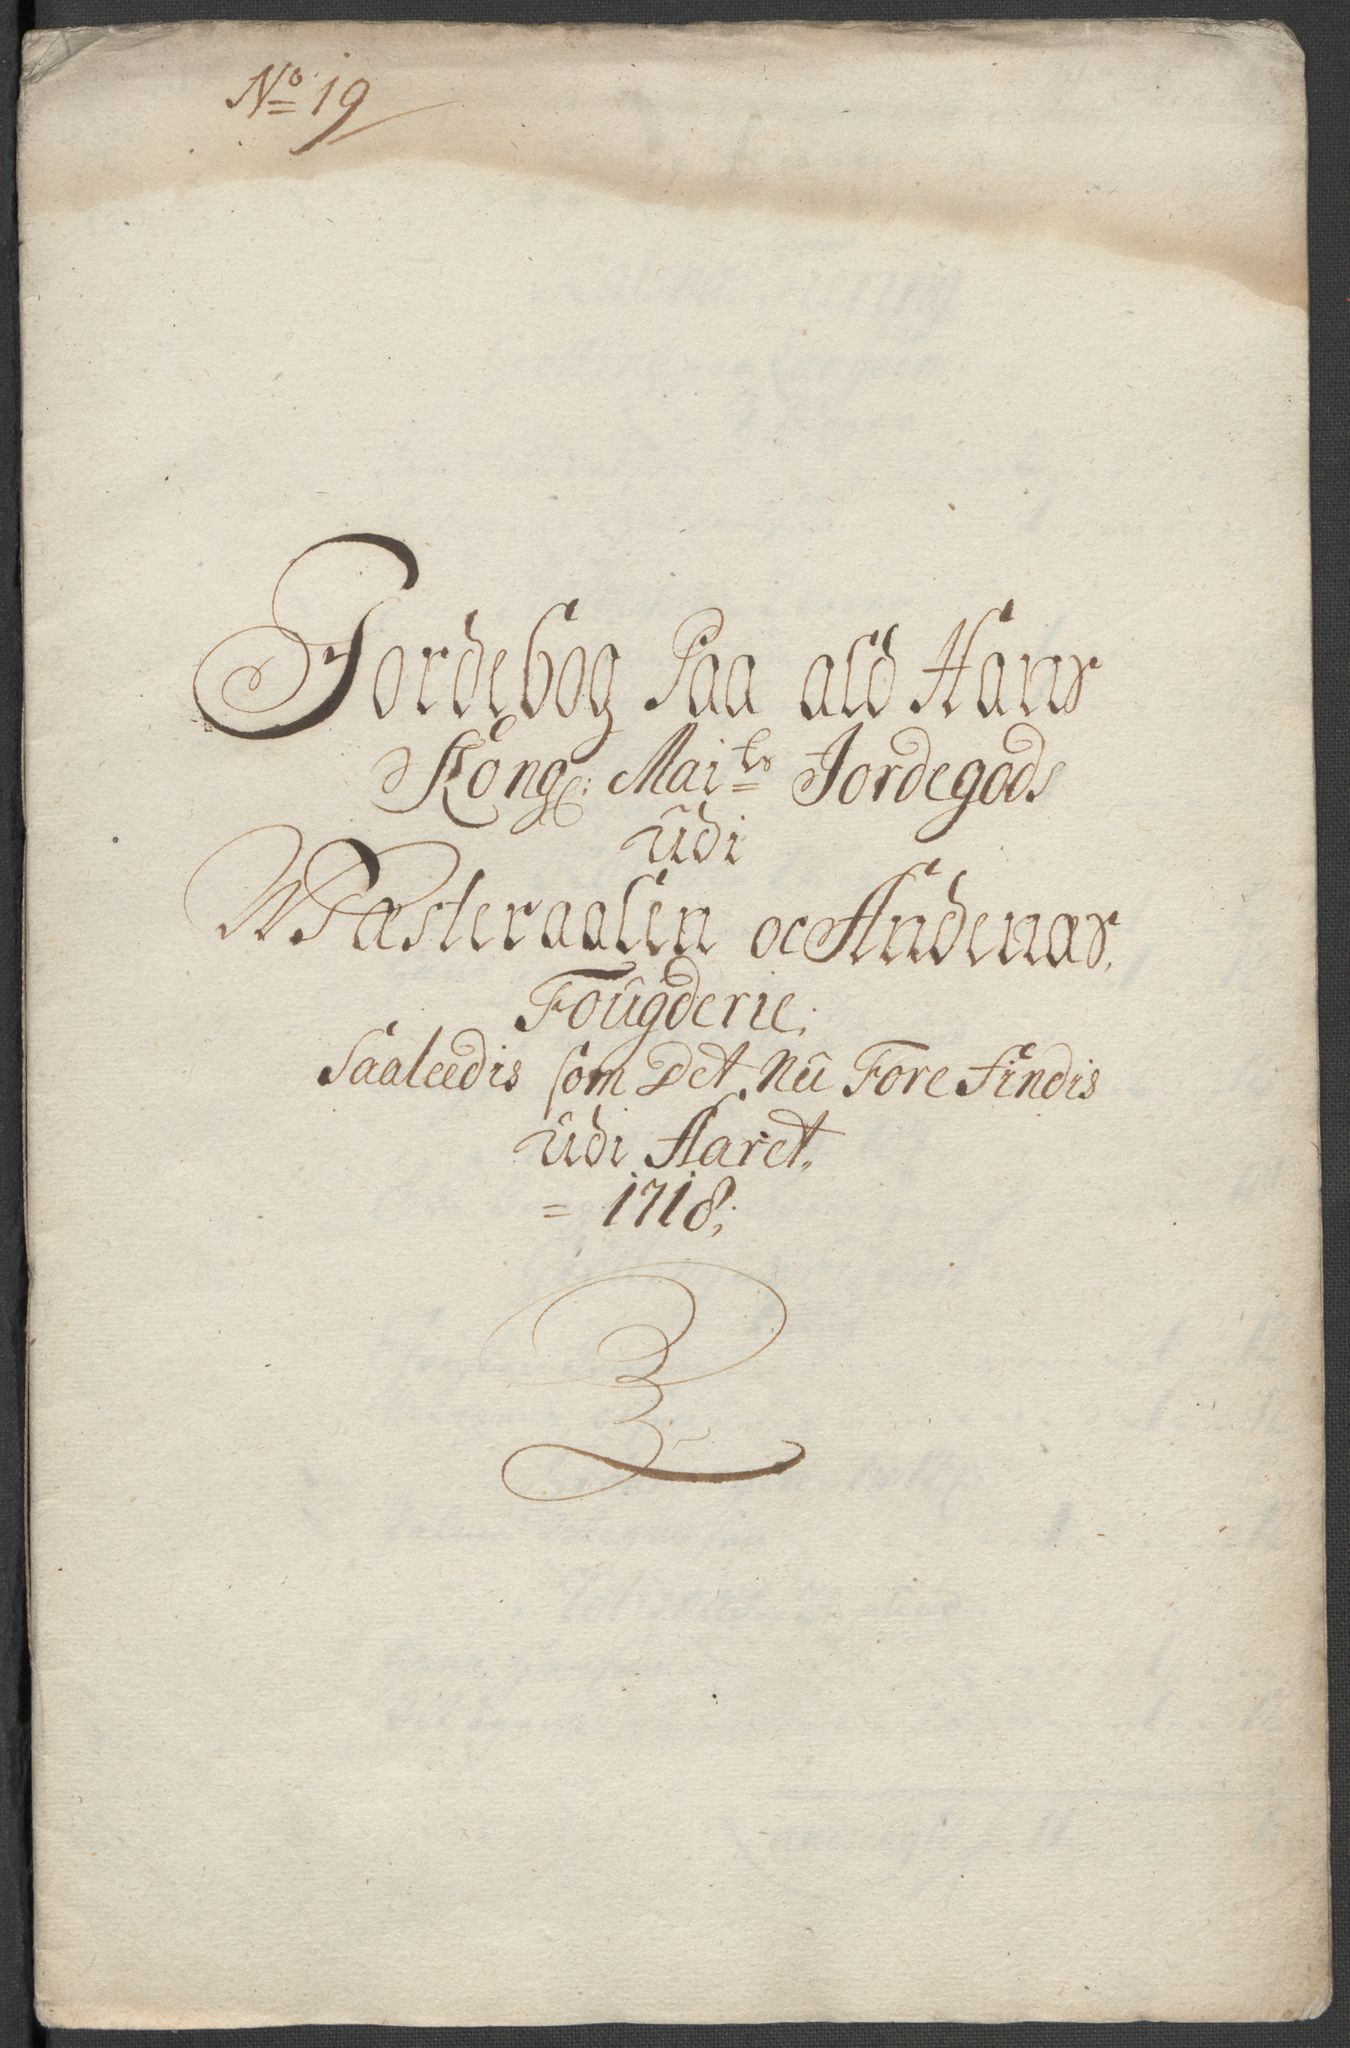 No 19
Jordebog Paa ald Hans
Kong: Maits Jordegods
udi
Wæsteraalen oc Andenæs
Fougderie;
Saaleedis som Det Nu Fore Findis
udi Aaret
= 1718;